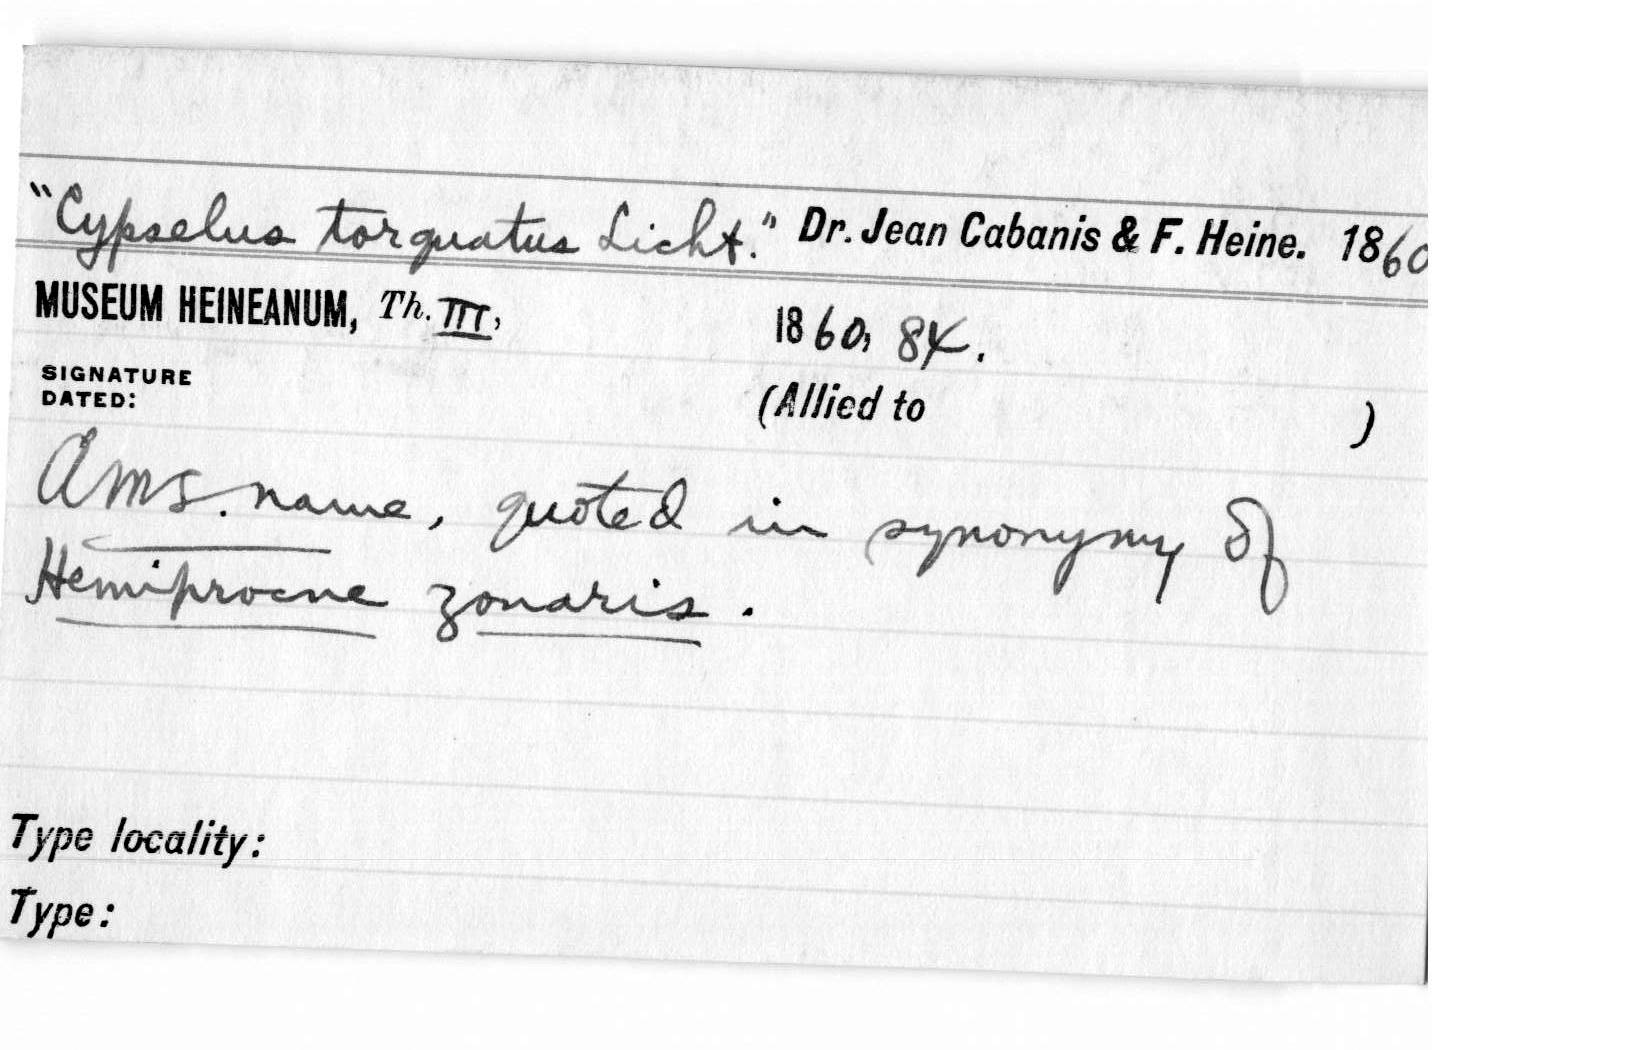 "Cypselus torquatus Licht." Dr. Jean Cabanis & F. Heine. 1860
MUSEUM HEINEANUM, Th. III, 1860, 84.
SIGNATURE
DATED: (Allied to )
A MS. name, quoted in synonymy of
Hemiprocne zonaris.
Type locality:
Type: